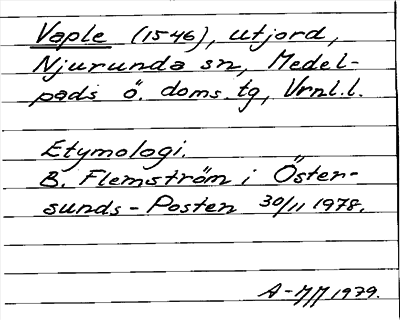 Vaple (1546), utjord,
Njurunda sn, Medel-
pads ö. doms. tg, Vrnl.l.
Etymologi.
B. Flemström i Öster-
sunds-Posten 30/11 1978.
A-MM 1979.